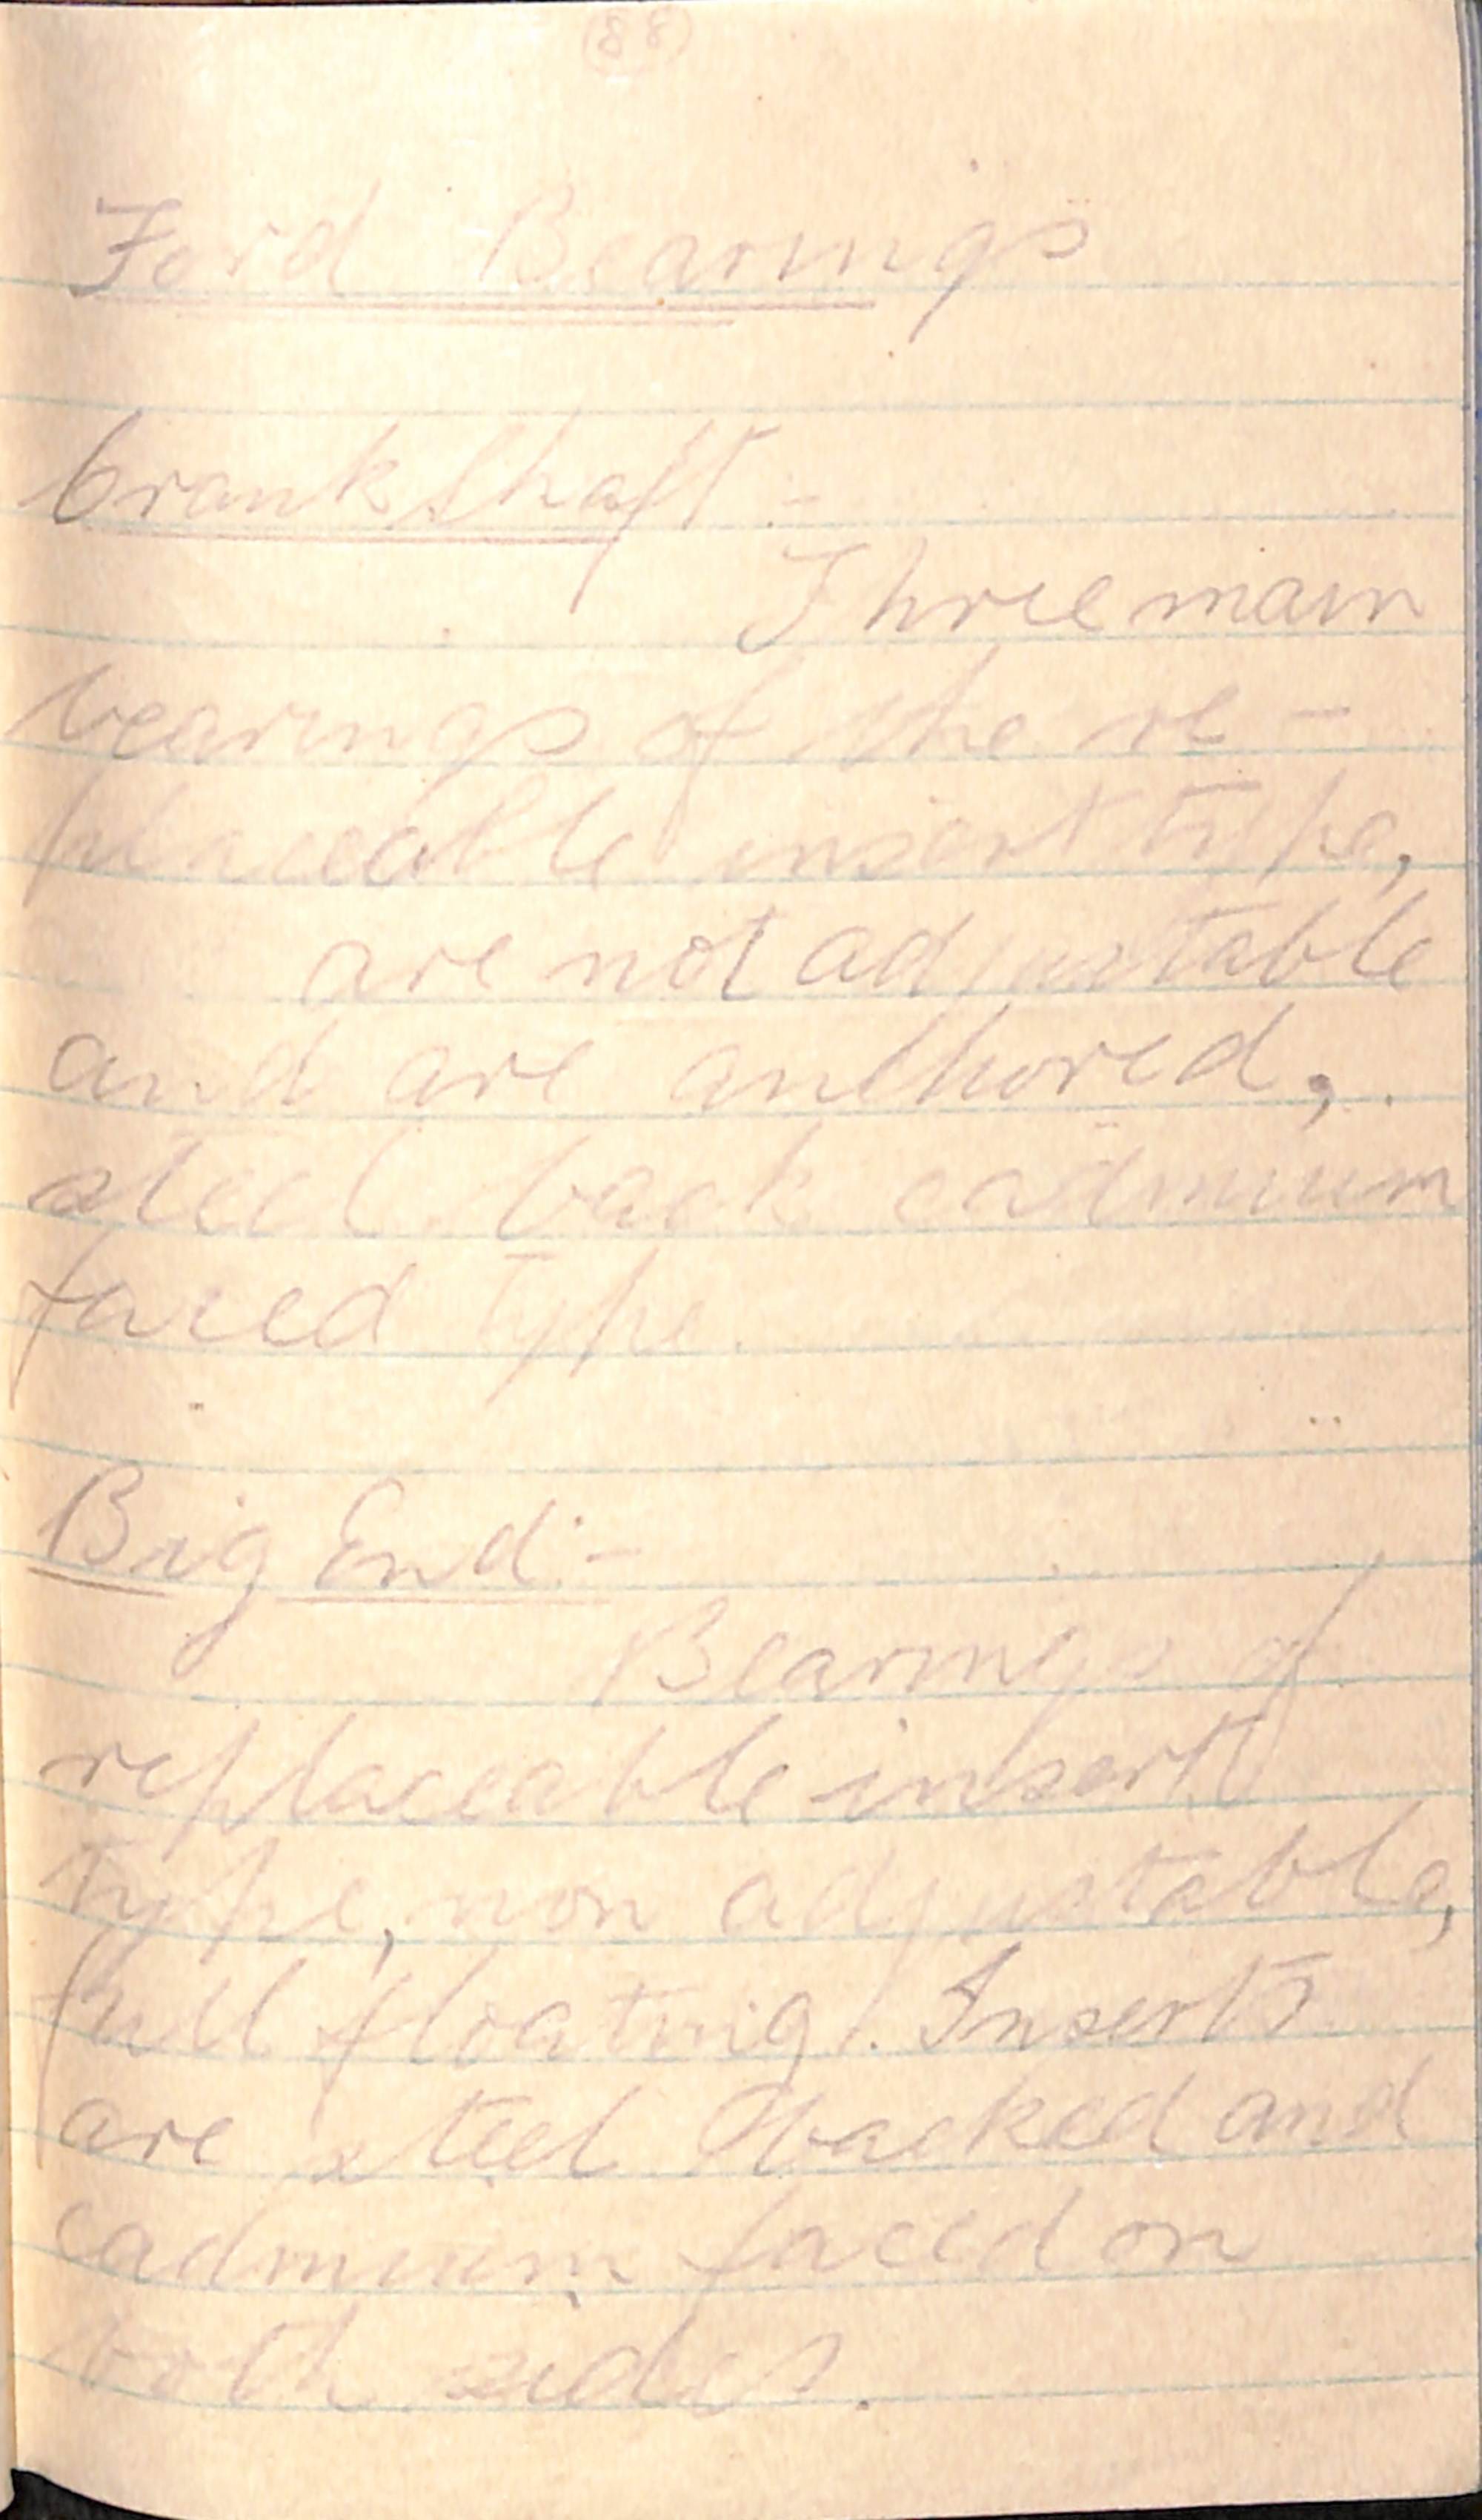 88
Ford Bearings
Crankshaft:-
Three main
bearings of the re-
placeable insert type,
are not adjustable
and are anchored,
steel back cadmium
faced type.
Big End:-
Bearings of
replaceable insert
type, non adjustable,
full floating. Inserts
are steel backed and
cadmium faced on
both sides.